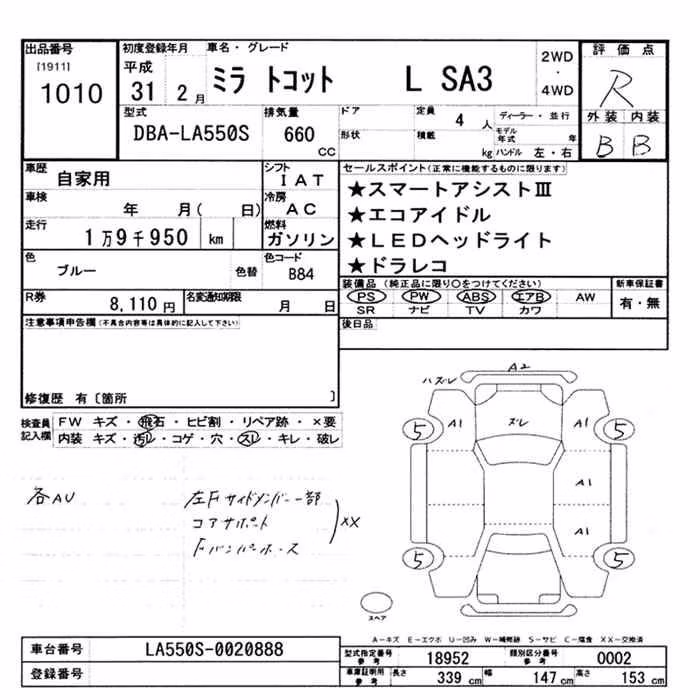 出品番号
[1911]
1010
初度登録年月
車名・グレード
平成
31 2 月
ミラ トコット L SA3
2WD
・
4WD
評価点
R
外装 内装
B B
型式
DBA-LA550S
排気量
660
CC
ドア
形状
定員
4 人
積載
kg
ディーラー・並行
モデル
年式 年
ハンドル 左・右
車歴
自家用
シフト
IAT
車検
年 月( 日)
冷房
AC
走行
1万9千950 km
燃料
ガソリン
色
ブルー
色替
色コード
B84
R券
8,110 円
名変通知期限
月 日
セールスポイント(正常に機能するものに限ります)
★スマートアシストⅢ
★エコアイドル
★LEDヘッドライト
★ドラレコ
装備品 (純正品に限り○をつけてください)
PS PW ABS エアB AW
SR ナビ TV カワ
新車保証書
有・無
後日品
注意事項申告欄(不具合内容等は具体的に記入して下さい)
修復歴 有〔箇所 〕
検査員
記入欄
FW キズ・飛石・ヒビ割・リペア跡・×要
内装 キズ・汚レ・コゲ・穴・スレ・キレ・破レ
各AU
左Fサイドメンバー一部
コアサポート
Fバンパーホース
XX
A2
ハズレ
ズレ
A1 A1
5 5
A1
A1
5 5
スペア
A-キズ E-エクボ U-凹み W-補修跡 S-サビ C-腐食 XX-交換済
車台番号
LA550S-0020888
登録番号
型式指定番号
参考
18952
類別区分番号
参考
0002
車庫証明用
参考
長さ
339 cm
幅
147 cm
高さ
153 cm